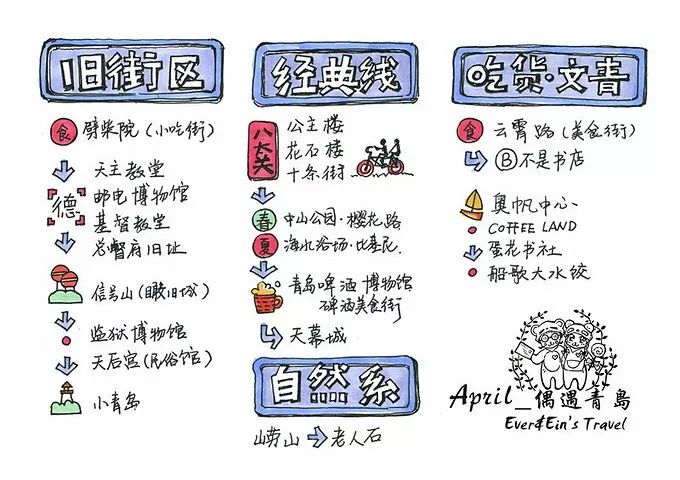 旧街区
食 劈柴院(小吃街)
天主教堂
德 邮电博物馆
基督教堂
总督府旧址
信号山(瞰旧城)
监狱博物馆
天后宫(民俗馆)
小青岛
经典线
八大关
公主楼
花石楼
十条街
春 中山公园·樱花路
夏 海水浴场·比基尼
青岛啤酒博物馆
啤酒美食街
天幕城
自然系
崂山 老人石
吃货·文青
食 云霄路(美食街)
B 不是书店
奥帆中心
COFFEE LAND
蛋花书社
船歌大水饺
April_偶遇青岛
Ever&Ein's Travel